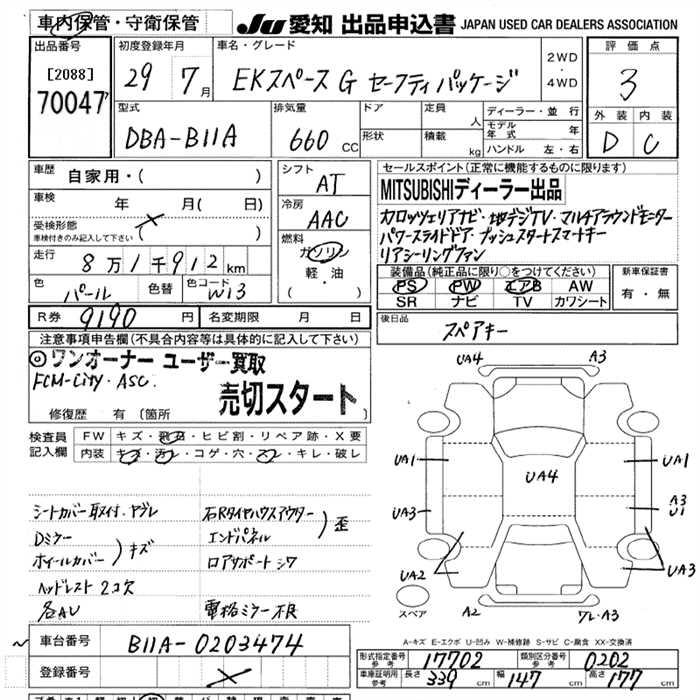 車内保管・守衛保管
JU 愛知 出品申込書 JAPAN USED CAR DEALERS ASSOCIATION
出品番号 初度登録年月 車名・グレード 評価点
[2088] 29 7月 EKスペース G セーフティパッケージ 2WD・4WD 3
70047
型式 排気量 ドア 定員 人 ディーラー・並行 外装 内装
DBA-B11A 660 CC 形状 積載 kg モデル年式 年 D C
ハンドル 左・右
車歴 自家用・( ) シフト AT セールスポイント(正常に機能するものに限ります)
車検 年 月( 日) 冷房 AAC MITSUBISHIディーラー出品
受検形態 ( ) カロッツェリアナビ・地デジTV・マルチアラウンドモニター
車検付きのみ記入して下さい 燃料 ガソリン パワースライドドア プッシュスタートスマートキー
走行 8万1千912km 軽・油 リアシーリングファン
色 パール 色替 色コード W13 ( )
装備品(純正品に限り○をつけてください) 新車保証書
PS PW エアB AW 有・無
SR ナビ TV カワシート
R券 9190 円 名変期限 月 日 後日品
スペアキー
注意事項申告欄(不具合内容等は具体的に記入して下さい)
◎ワンオーナー ユーザー買取
FCM-City・ASC.
売切スタート
修復歴 有 [箇所
検査員記入欄 FW キズ・飛石・ヒビ割・リペア跡・X要
内装 キズ・汚レ・コゲ・穴・スレ・キレ・破レ
シートカバー取付・ヤブレ 石Rタイヤハウスアウター
Dミラー エンドパネル ) 歪
ホイールカバー ) キズ ロアサポート シワ
ヘッドレスト 2コ欠
各AU 電格ミラー不良
UA4 A3
UA1 UA4 UA1
UA3 A3
U1
UA2 UA3
スペア A2 ワレ・A3
A-キズ E-エクボ U-凹み W-補修跡 S-サビ C-腐食 XX-交換済
車台番号 B11A-0203474
登録番号
形式指定番号 参考 17702 類別区分番号 参考 0202
車庫証明用 参考 長さ 339 cm 幅 147 cm 高さ 177 cm